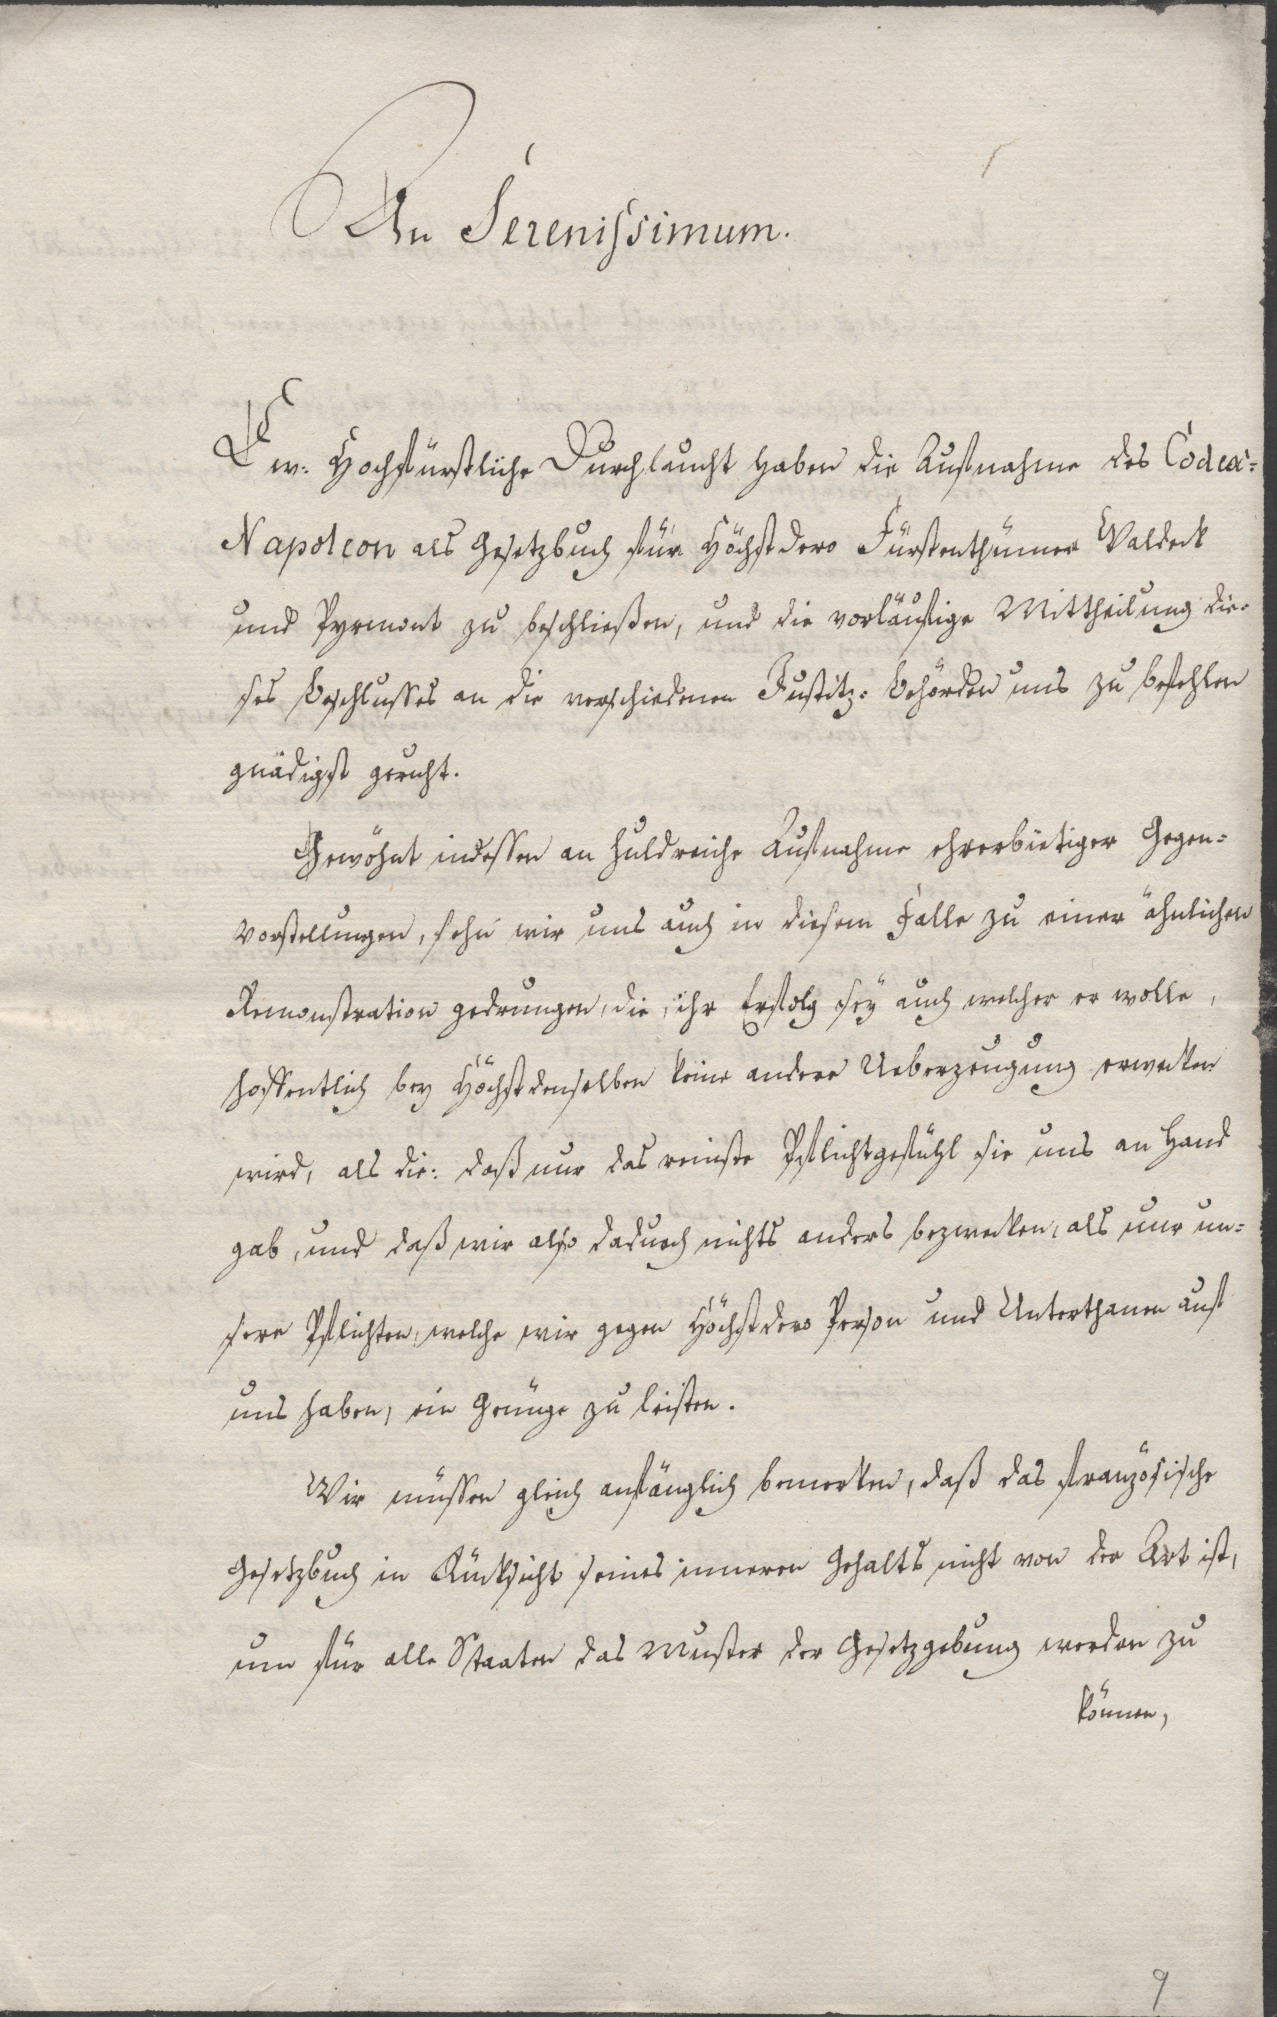 An Serenissimum.
Ew. Hochfürstliche Durchlaucht haben die Aufnahme des Codex=
Napoleon als Gesetzbuch für Höchstdero Fürstenthümer Waldeck
und Pyrmont zu beschließen, und die vorläufige Mittheilung die=
ses Beschlusses an die verschiedenen Justitz=Behörden uns zu befehlen
gnädigst geruht.
Gewöhnt indessen an huldreiche Aufnahme ehrerbietiger Gegen=
vorstellungen, sehn wir uns auch in diesem Falle zu einer ähnlichen
Remonstration gedrungen, die, ihr Erfolg sey auch welcher er wolle,
hoffentlich bey Höchstdenselben keine andere Ueberzeugung erwecken
wird, als die: daß nur das reinste Pflichtgefühl sie uns an Hand
gab, und daß wir also dadurch nichts anders bezwecken, als nur un=
sere Pflichten, welche wir gegen Höchstdero Person und Unterthanen auf
uns haben, ein Genüge zu leisten.
Wir müssen gleich anfänglich bemerken, daß das französische
Gesetzbuch in Rücksicht seines inneren Gehalts nicht von der Art ist,
um für alle Staaten das Muster der Gesetzgebung werden zu
können,
9